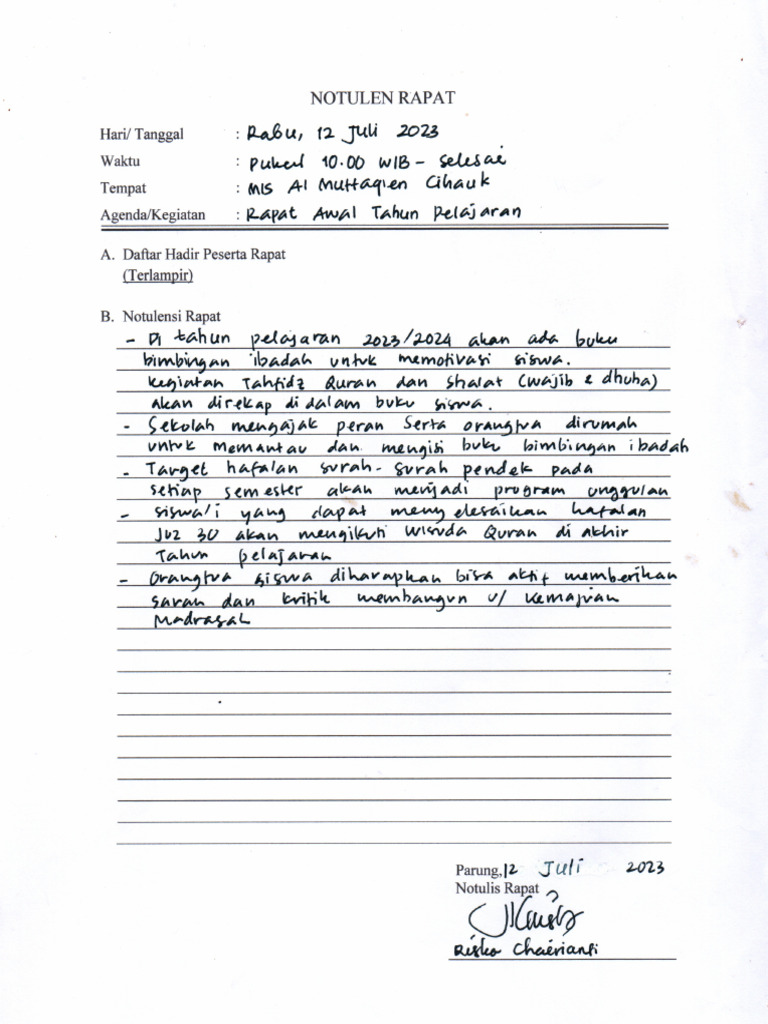 NOTULEN RAPAT
Hari/ Tanggal : Rabu, 12 Juli 2023
Waktu : Pukul 10.00 WIB - Selesai
Tempat : MIS Al Muttaqien Cihauk
Agenda/Kegiatan : Rapat Awal Tahun Pelajaran
A. Daftar Hadir Peserta Rapat
(Terlampir)
B. Notulensi Rapat
- Di tahun pelajaran 2023/2024 akan ada buku
bimbingan ibadah untuk memotivasi siswa.
kegiatan Tahfidz Quran dan Shalat (wajib & dhuha)
akan direkap di dalam buku siswa.
- Sekolah mengajak peran serta orangtua dirumah
untuk memantau dan mengisi buku bimbingan ibadah
- Target hafalan surah-surah pendek pada
setiap semester akan menjadi program unggulan
- siswa/i yang dapat menyelesaikan hafalan
Juz 30 akan mengikuti wisuda Quran di akhir
Tahun pelajaran
- Orangtua siswa diharapkan bisa aktif memberikan
saran dan kritik membangun u/ kemajuan
Madrasah
Parung, 12 Juli 2023
Notulis Rapat
Riska Chaerianti